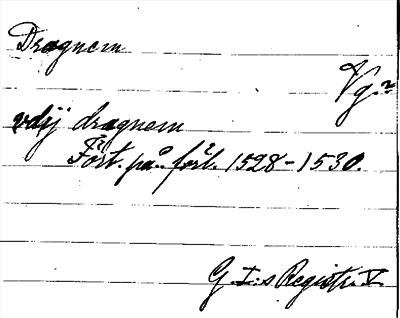 Dragnem
Vg.?
vdij dragnem
Fört. på förl. 1528-1530.
G I:s Registr. V.